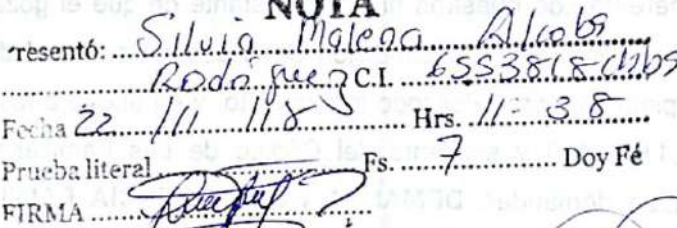 NOTA
Presentó: Silvia Malena Alcoba
Rodriguez C.I. 6553818 chbs
Fecha 22 / 11 / 18 Hrs. 11-38
Prueba literal Fs. 7 Doy Fé
FIRMA